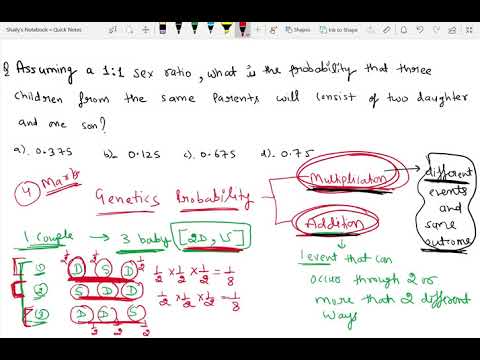 Shaily's Notebook » Quick Notes
Shapes
Ink to Shape
Q Assuming a 1:1 sex ratio, what is the probability that three
children from the same parents will consist of two daughter
and one son?
a). 0.375 b). 0.125 c). 0.675 d). 0.75
4 Marks
Genetics Probability
Multiplication
different
events
and
same
outcome
Addition
1 couple → 3 baby [2D, 1S]
1 event that can
occur through 2 or
more than 2 different
ways
1/2 1/2 1/2
D S D 1/2 x 1/2 x 1/2 = 1/8
S D D 1/2 x 1/2 x 1/2 = 1/8
D D S
1/2 1/2 1/2